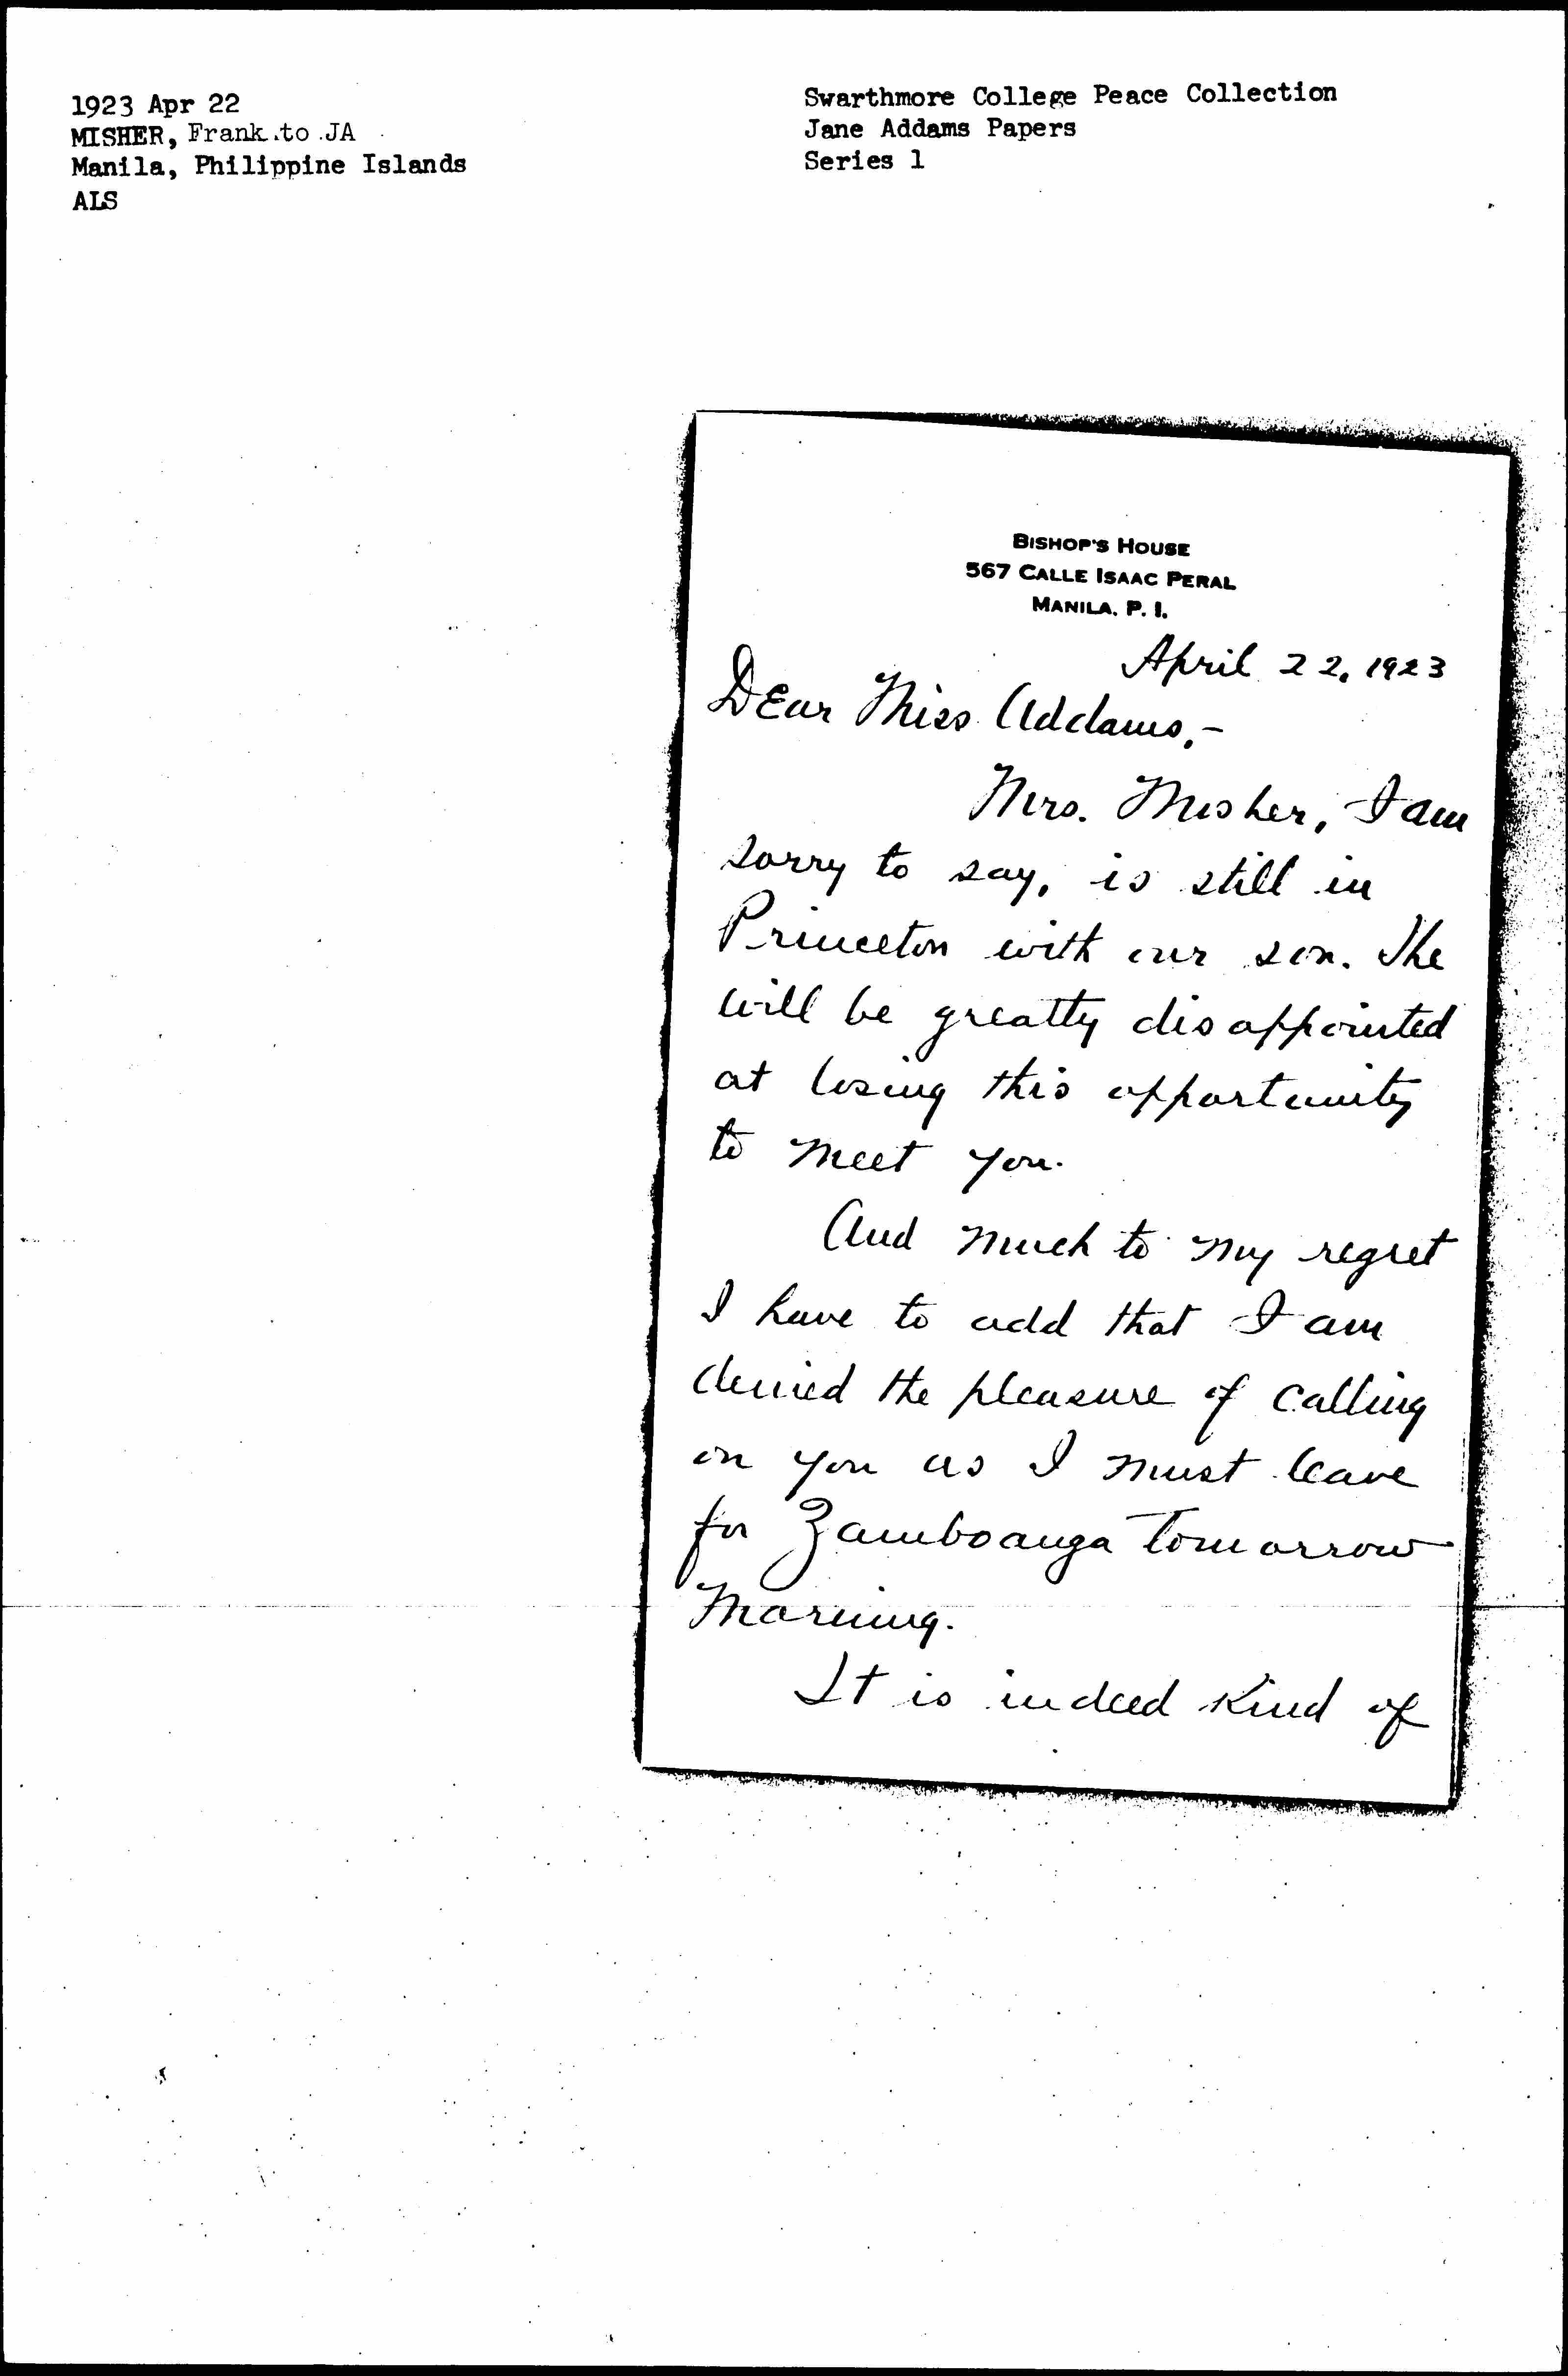 1923 Apr 22
MISHER, Frank to JA
Manila, Philippine Islands
ALS
Swarthmore College Peace Collection
Jane Addams Papers
Series 1
BISHOP'S HOUSE
567 CALLE ISAAC PERAL
MANILA. P. I.
April 22, 1923
Dear Miss Addams,-
Mrs. Mosher, I am
sorry to say, is still in
Princeton with our son. She
will be greatly disappointed
at losing this opportunity
to meet you.
And much to my regret
I have to add that I am
denied the pleasure of calling
on you as I must leave
for Zamboanga tomorrow
morning.
It is indeed kind of